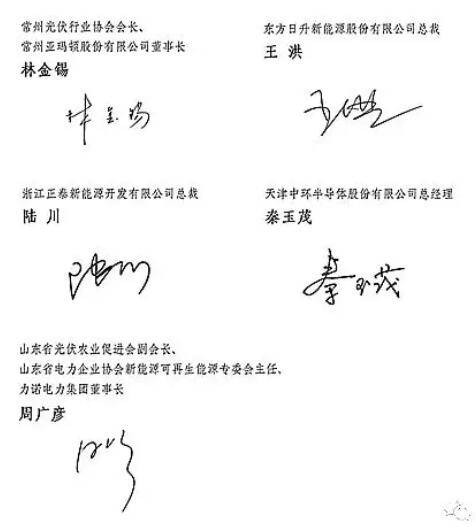 常州光伏行业协会会长、
常州亚玛顿股份有限公司董事长
林金锡
林金锡
东方日升新能源股份有限公司总裁
王 洪
王洪
浙江正泰新能源开发有限公司总裁
陆 川
陆川
天津中环半导体股份有限公司总经理
秦玉茂
秦玉茂
山东省光伏农业促进会副会长、
山东省电力企业协会新能源可再生能源专委会主任、
力诺电力集团董事长
周广彦